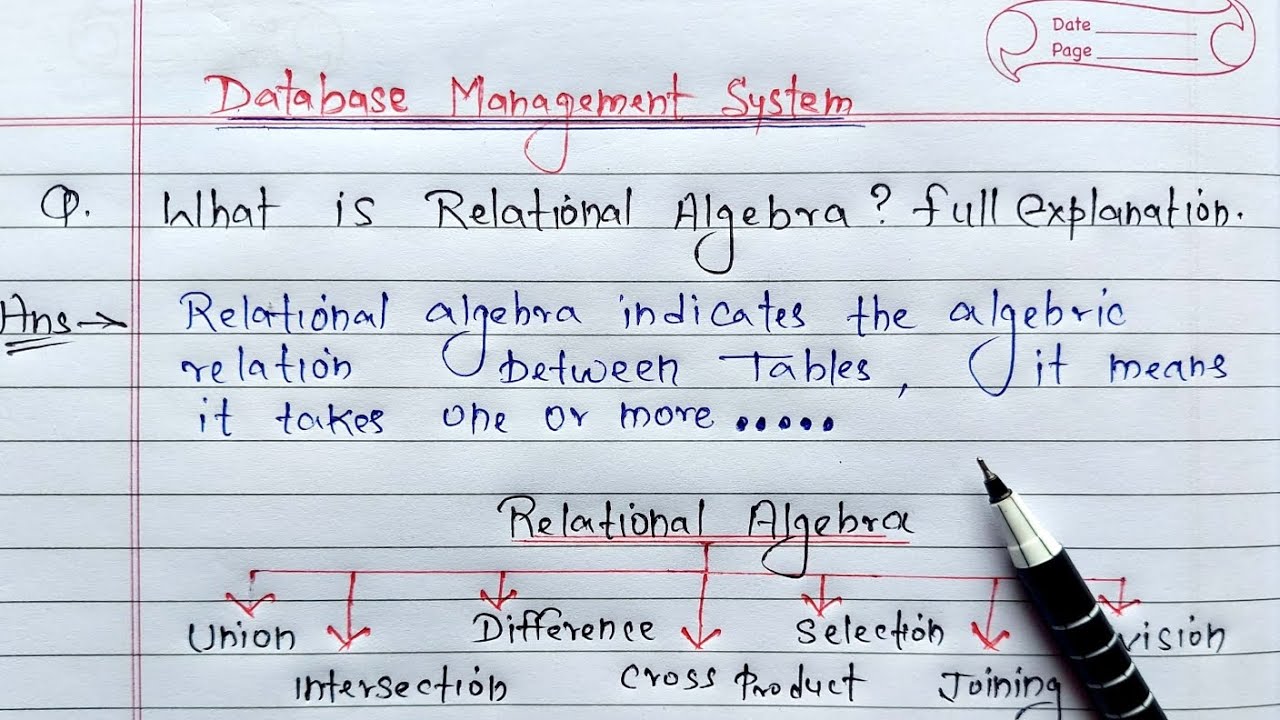 Date
Page
Database Management System
Q. What is Relational Algebra? full explanation.
Ans→ Relational algebra indicates the algebric
relation between Tables, it means
it takes one or more.....
Relational Algebra
Union Difference Selection vision
Intersection Cross Product Joining